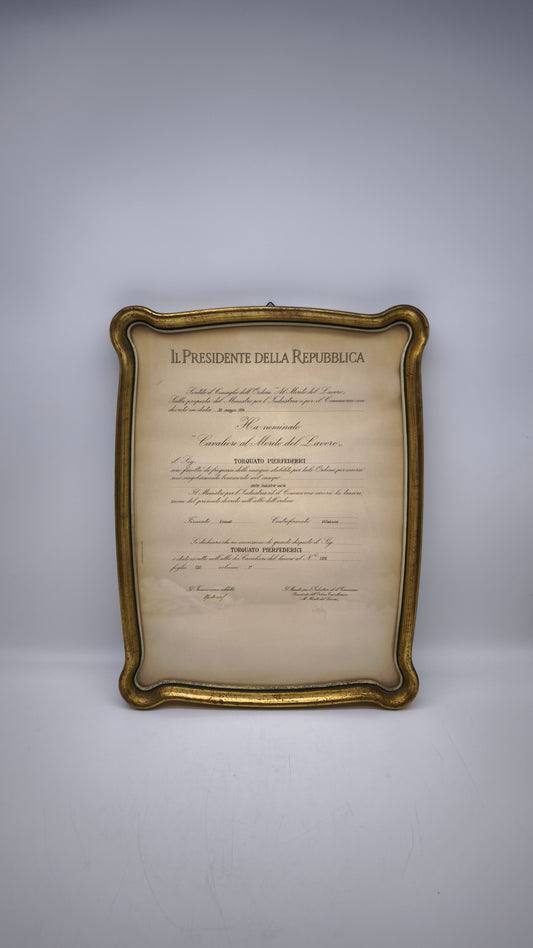 IL PRESIDENTE DELLA REPUBBLICA
Sentito il Consiglio dell'Ordine "Al Merito del Lavoro"
Sulla proposta del Ministro per l'Industria e per il Commercio con
decreto in data
Ha nominato
"Cavaliere al Merito del Lavoro"
il Sig. TORQUATO PIERFEDERICI
con facoltà di fregiarsi delle insegne stabilite per tale Ordine per essersi
reso singolarmente benemerito nel campo
Il Ministro per l'Industria ed il Commercio curerà la trascri,
zione del presente decreto nell'albo dell'ordine
Firmato Controfirmato
Si dichiara che in esecuzione di quanto disposto il Sig.
TORQUATO PIERFEDERICI
è stato iscritto nell'albo dei Cavalieri del lavoro al N.
foglio volume
Il Funzionario addetto
Il Ministro per l'Industria ed il Commercio
Al Merito del Lavoro